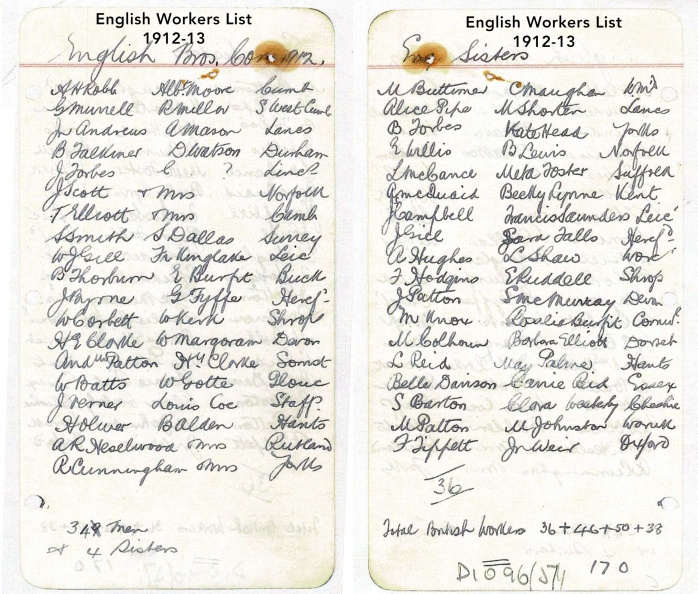 English Workers List
1912-13
English Bros. Con 1912.
A H Robb Albt. Moore Cumb
G Murrell R Millar S West Cumb
Jn Andrews A Mason Lancs
B Falkiner D Watson Durham
J Forbes C
J Scott & Mrs Norfolk
T Elliott & Mrs Camb
S Smith S Dallas Surrey
W J Gill Fr Kinglake Leic
B Thorburn E Burfit Buck
J Byrne G Fyffe Heref
W Corbett W Kerr Shrop
H G Clarke W Margoram Devon
Andw Patton Hy Clarke Somst
W Batts W Grotte Glouc
J Verner Louis Coe Staff
A Holmer B Alden Hants
A R Heselwood Mrs Rutland
R Cunningham Mrs Yorks
34 Men
& 4 Sisters
English Workers List
1912-13
Eng Sisters
M Buttimer C Maughan Wmd
Alice Pipe M Shorten Lancs
B Forbes Kate Head Yorks
E Willis B Lewis Norfolk
L McCance Meta Foster Suffolk
A McQuaid Becky Pynne Kent
J Campbell Francis Saunders Leic
J Gill Sara Falls Heref
A Hughes L Shaw Worc
F Hodgins E Ruddell Shrop
J Patton S McMurray Devon
M Knox Rosalie Burfit Cornw.
M Colhoun Barbara Elliott Dorset
L Reid May Palmer Hants
Belle Davison Carrie Reid Essex
S Barton Clara Weatherby Cheshire
M Patton M Johnston Warwk
F Tippett Jn Weir Oxford
36
Total British Workers 36+46+50+38
170
D1096/5/1